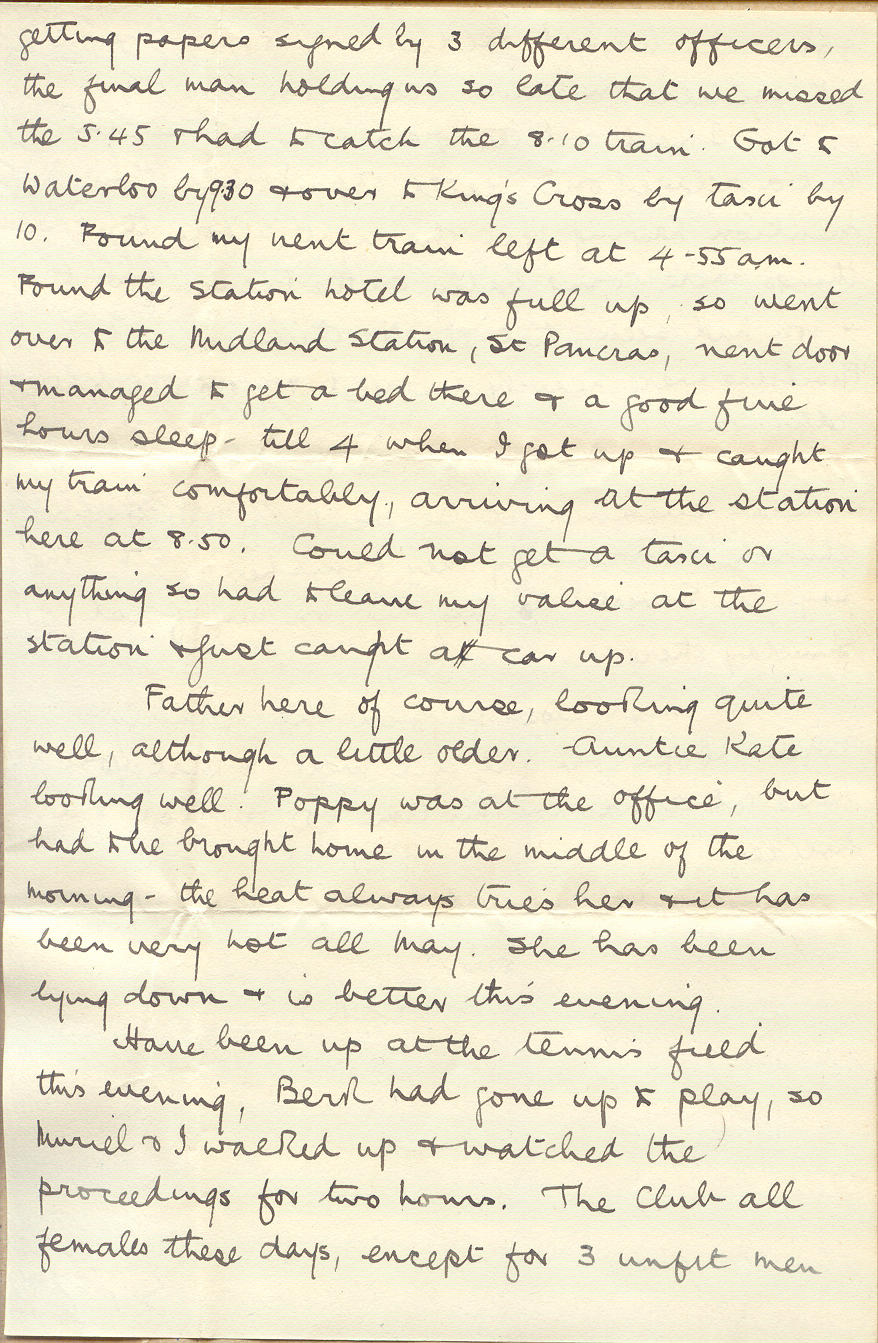 getting papers signed by 3 different officers,
the final man holding us so late that we missed
the 5.45 & had to catch the 8.10 train. Got to
Waterloo by 9.30 & over to King's Cross by taxi by
10. Found my next train left at 4-55 am.
Found the station hotel was full up, so went
over to the Midland Station, St Pancras, next door
& managed to get a bed there & a good five
hours sleep - till 4 when I got up & caught
my train comfortably, arriving at the station
here at 8.50. Could not get a taxi or
anything so had to leave my valise at the
station & just caught a car up.
Father here of course, looking quite
well, although a little older. Auntie Kate
looking well. Poppy was at the office, but
had to be brought home in the middle of the
morning - the heat always tries her & it has
been very hot all May. She has been
lying down & is better this evening.
Have been up at the tennis field
this evening, Berk had gone up to play, so
Muriel & I walked up & watched the
proceedings for two hours. The Club all
females these days, except for 3 unfit men